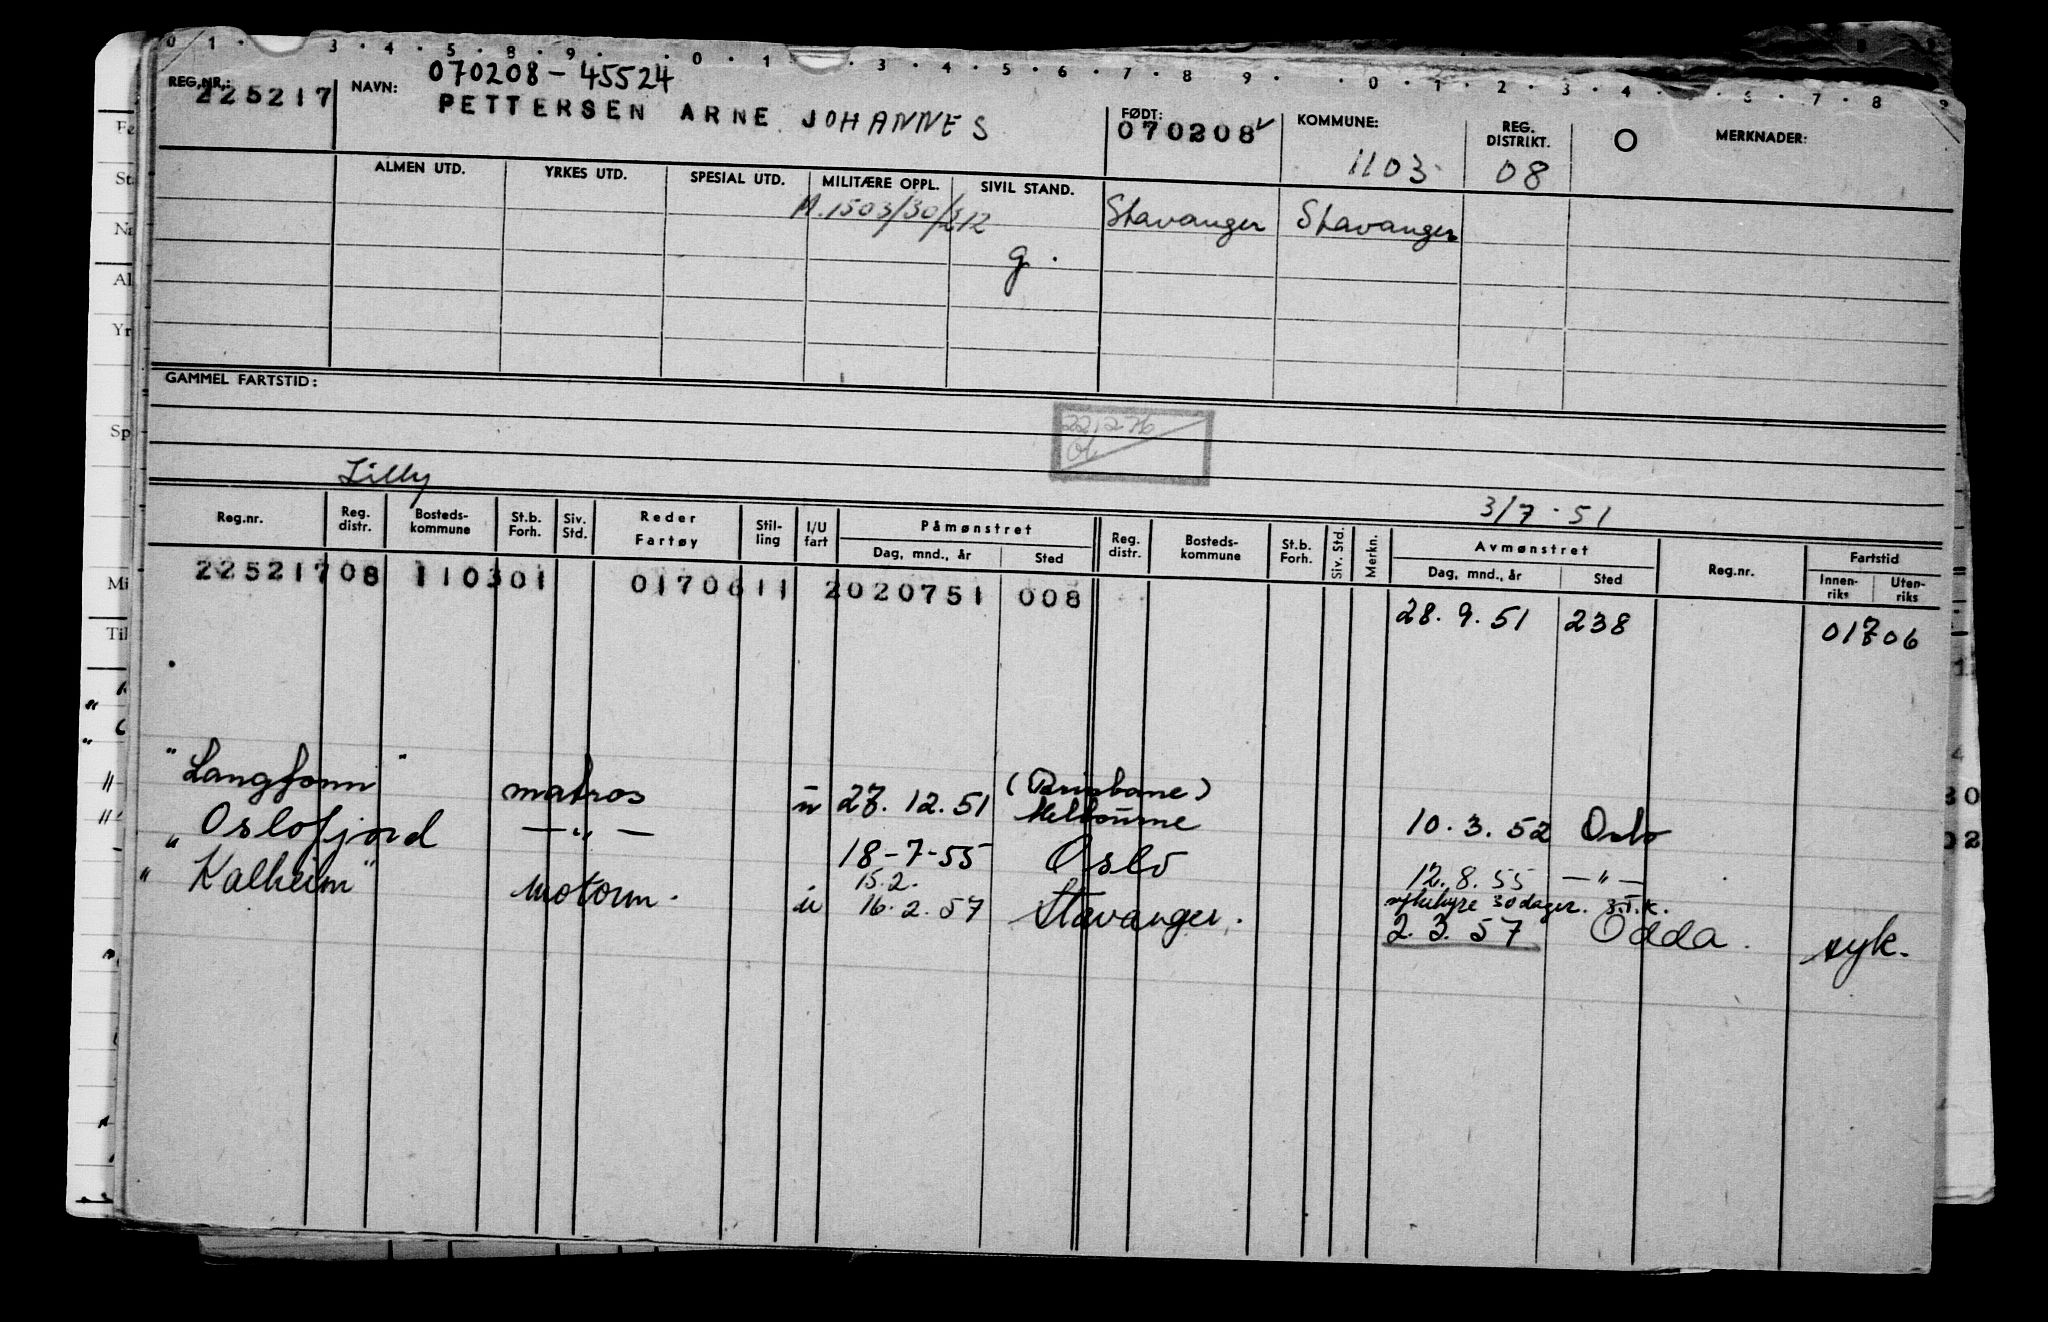 0 1 · 3 · 4 · 5 · 8 · 9 · 0 · 1 · 3 · 4 · 5 · 6 · 7 · 8 · 9 · 0 · 1 · 2 · 3 · 4 · 6 · 7 · 8 9
REG.NR.: 225217 NAVN: 070208-45524
PETTERSEN ARNE JOHANNES
FØDT: 070208 KOMMUNE: 1103 REG. DISTRIKT. 08 O MERKNADER:
ALMEN UTD. YRKES UTD. SPESIAL UTD. MILITÆRE OPPL. SIVIL STAND.
M.1503/30/ Stavanger Stavanger
g.
GAMMEL FARTSTID:
221276
Lilly
3/7-51
Reg.nr. Reg. distr. Bosteds-kommune St.b. Forh. Siv. Std. Reder Fartøy Stil-ling I/U fart Påmønstret Dag, mnd., år Sted Reg. distr. Bosteds-kommune St.b. Forh. Siv. Std. Merkn. Avmønstret Dag, mnd., år Sted Reg.nr. Fartstid Innen-riks Uten-riks
225217 08 1103 01 017061 1 2 020751 008 28.9.51 238 01706
"Langfonn" matros u 27.12.51 (Brisbane) Melbourne 10.3.52 Oslo
"Oslofjord — " — 18-7-55 Oslo 12.8.55 — " —
15.2. sykehyre 30 dager.
"Kalheim" motorm. u 16.2.57 Stavanger. 2.3.57 Odda. syk.
Fe
St
Na
Al
Yr
Sp
Mi
Til